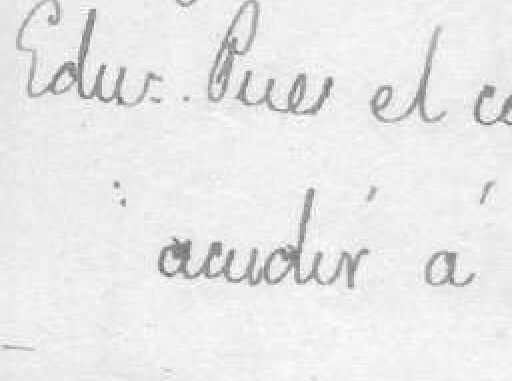 Edu. Pues el
acudir á